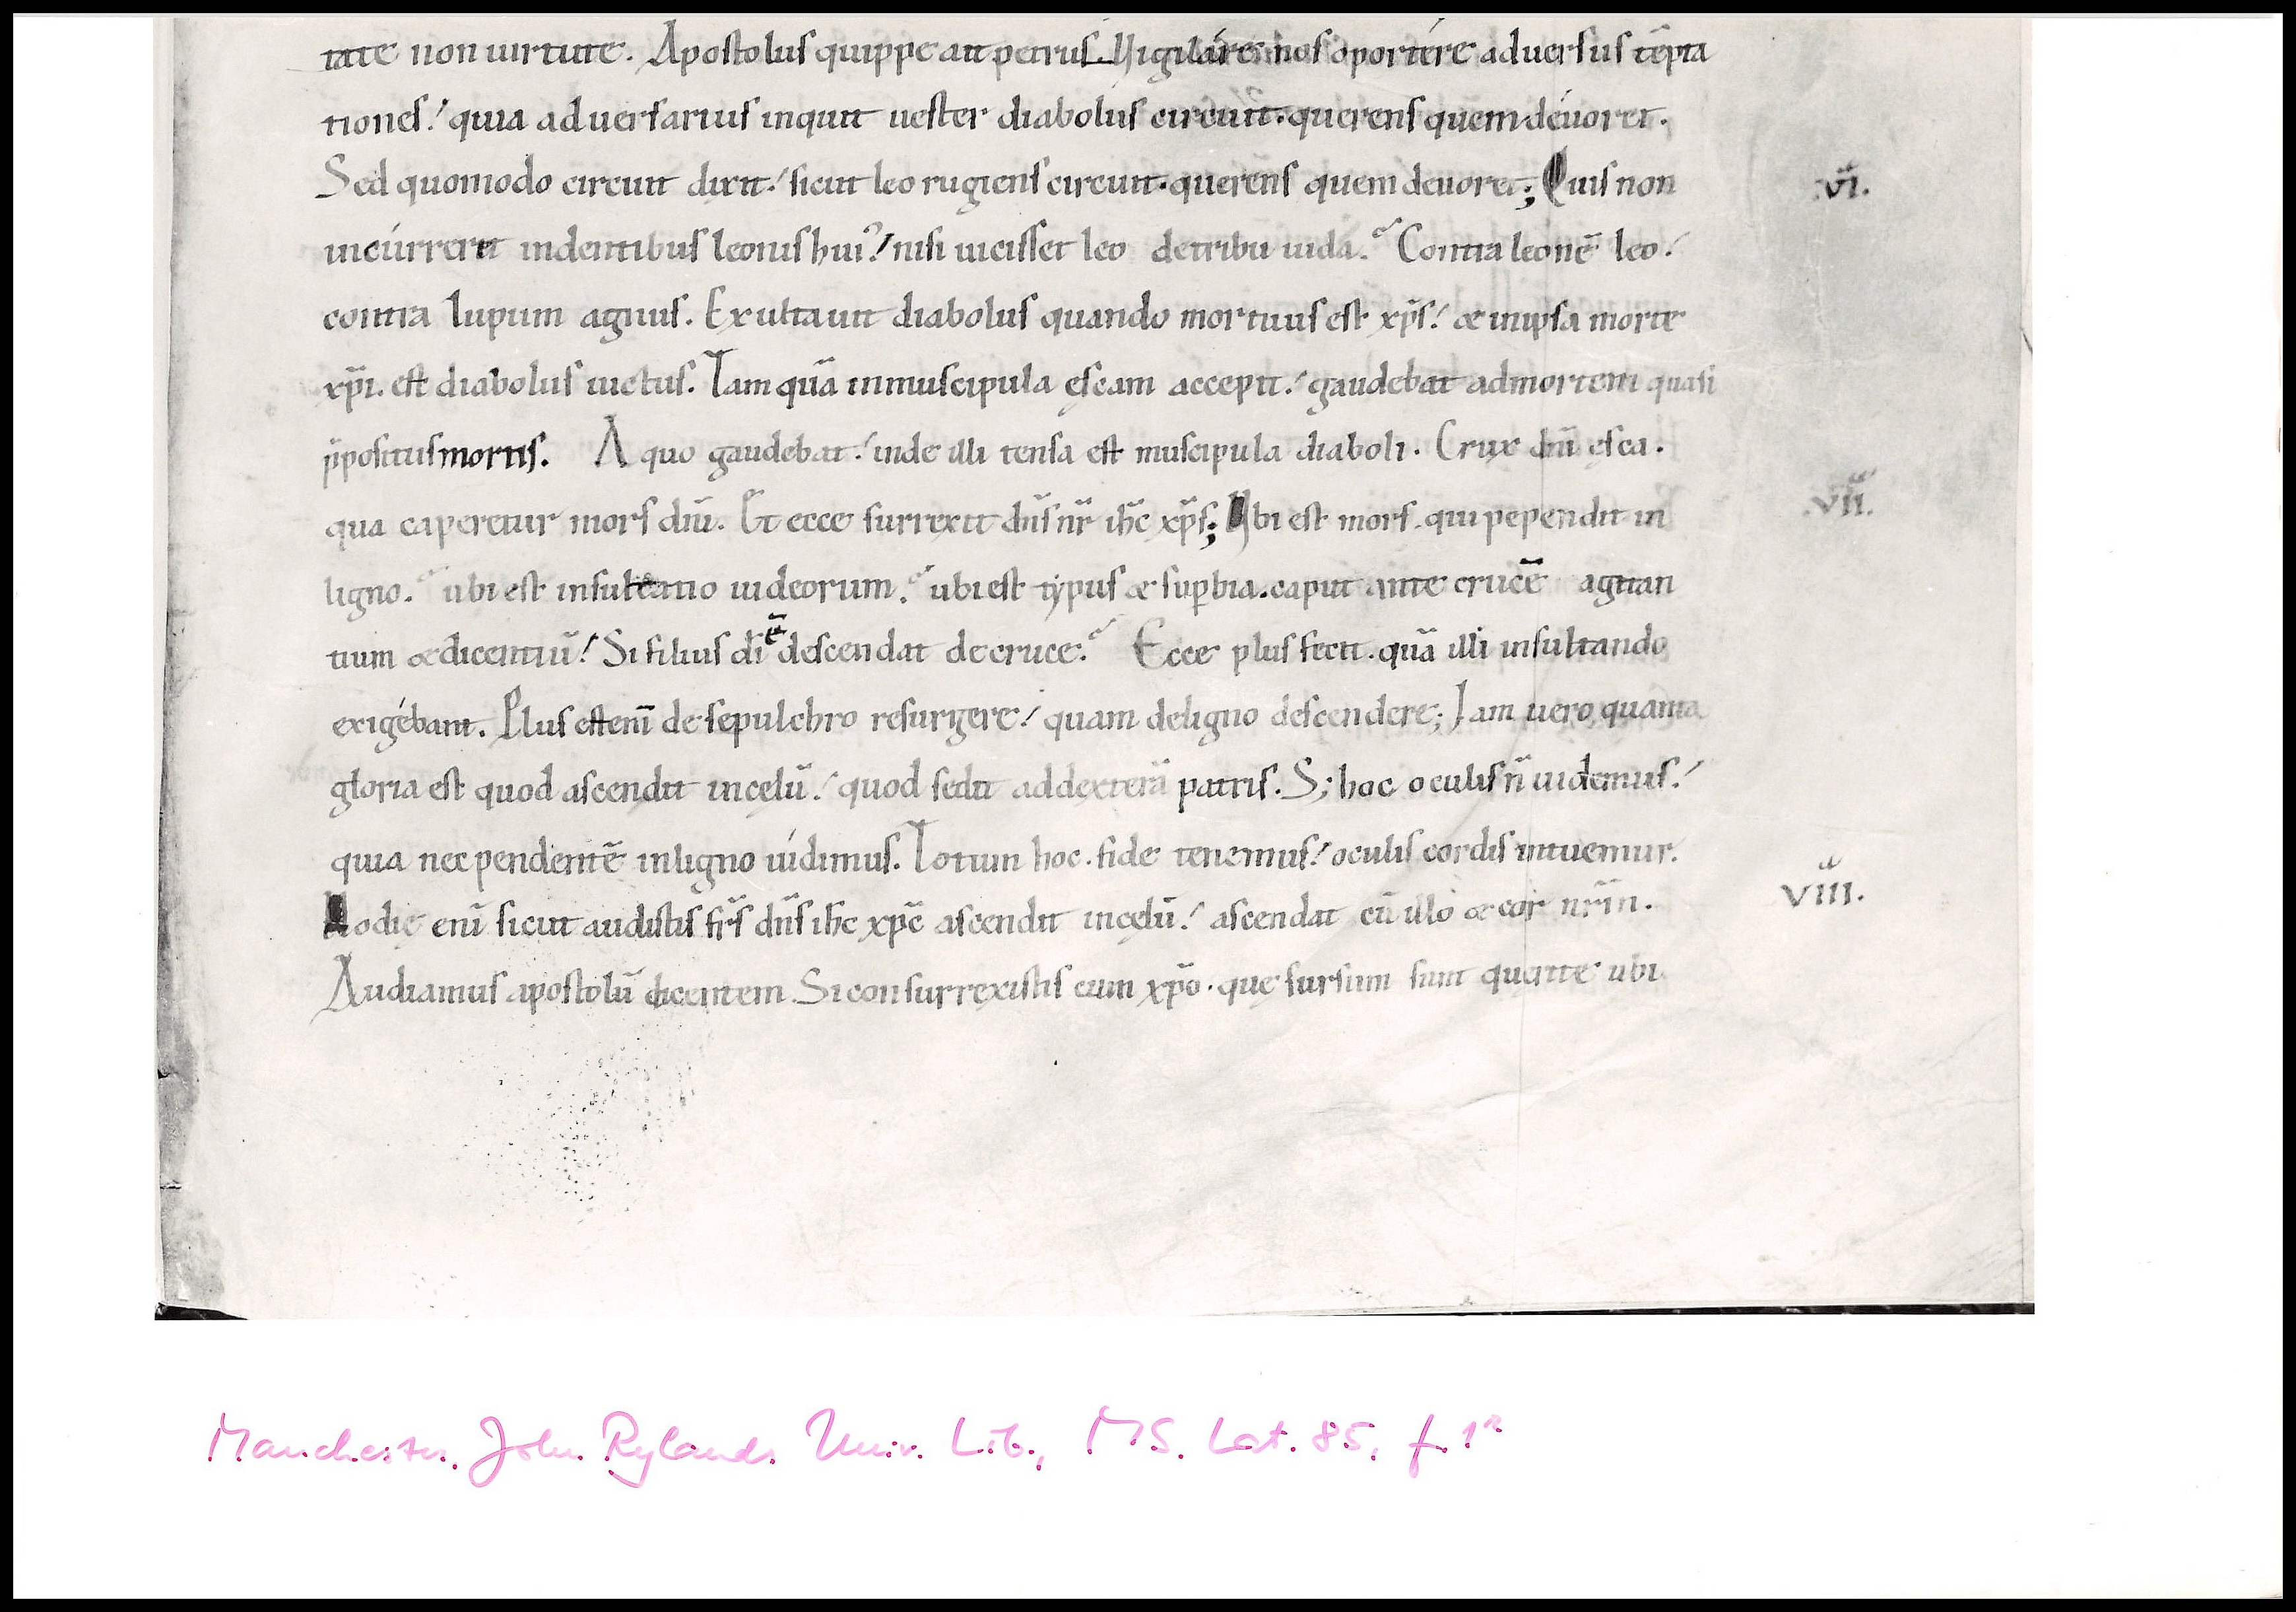 tate non uirtute. Apostolus quippe ait petrus. Vigilare nos oportére aduersus tēpta
tiones! quia aduersarius inquit uester diabolus circuit. querens quem deuoret.
Sed quomodo circuit dixit! sicut leo rugiens circuit. querens quem deuoret; Quis non
.vi.
incúrrerit in dentibus leonis hui'! nisi uicisset leo de tribu iuda. Contra leonē leo!
contra lupum agnus. Exultauit diabolus quando mortuus est xp̄s! & in ipsa morte
xp̄i. est diabolus uictus. Tam quā in muscipula escam accepit! gaudebat ad mortem quasi
p̄positus mortis. A quo gaudebat! inde illi tensa est muscipula diaboli. Crux dn̄i esca.
qua caperetur mors dn̄i. Et ecce surrexit dn̄s nr̄ ih̄c xp̄s; Vbi est mors. qui pependit in
.vii.
ligno. ubi est insultatio iudeorum. ubi est typus & sup̱bia. caput ante crucē agitan
tium & dicentiū! Si filius dī ē descendat de cruce. Ecce plus fecit. quā illi insultando
exigébant. Plus est enī de sepulchro resurgere! quam de ligno descendere; Iam uero quanta
gloria est quod ascendit in celū! quod sedit ad dexterā patris. S; hoc oculis n̄ uidemus!
quia nec pendentē in ligno uídimus. Totum hoc. fide tenemus! oculis cordis intuemur.
Hodie enī sicut audistis fr̄s dn̄s ih̄c xp̄c ascendit in celū! ascendat cū illo & cor nr̄m.
viii.
Audiamus apostolū dicentem Si consurrexistis cum xp̄o. que sursum sunt querite ubi
Manchester. John Rylands Univ. Lib., MS. Lat. 85, f. 1r